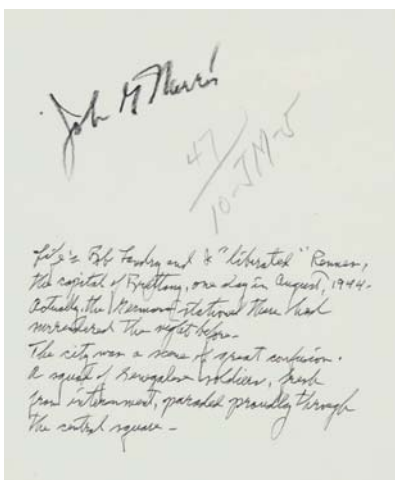 John G Morris
47
10-JM-5
Life's Bob Landry and I "liberated" Rennes,
the capital of Brittany, one day in August, 1944.
Actually, the Germans stationed there had
surrendered the night before.
The city was a scene of great confusion.
A squad of Senegalese soldiers, fresh
from internment, paraded proudly through
the central square –